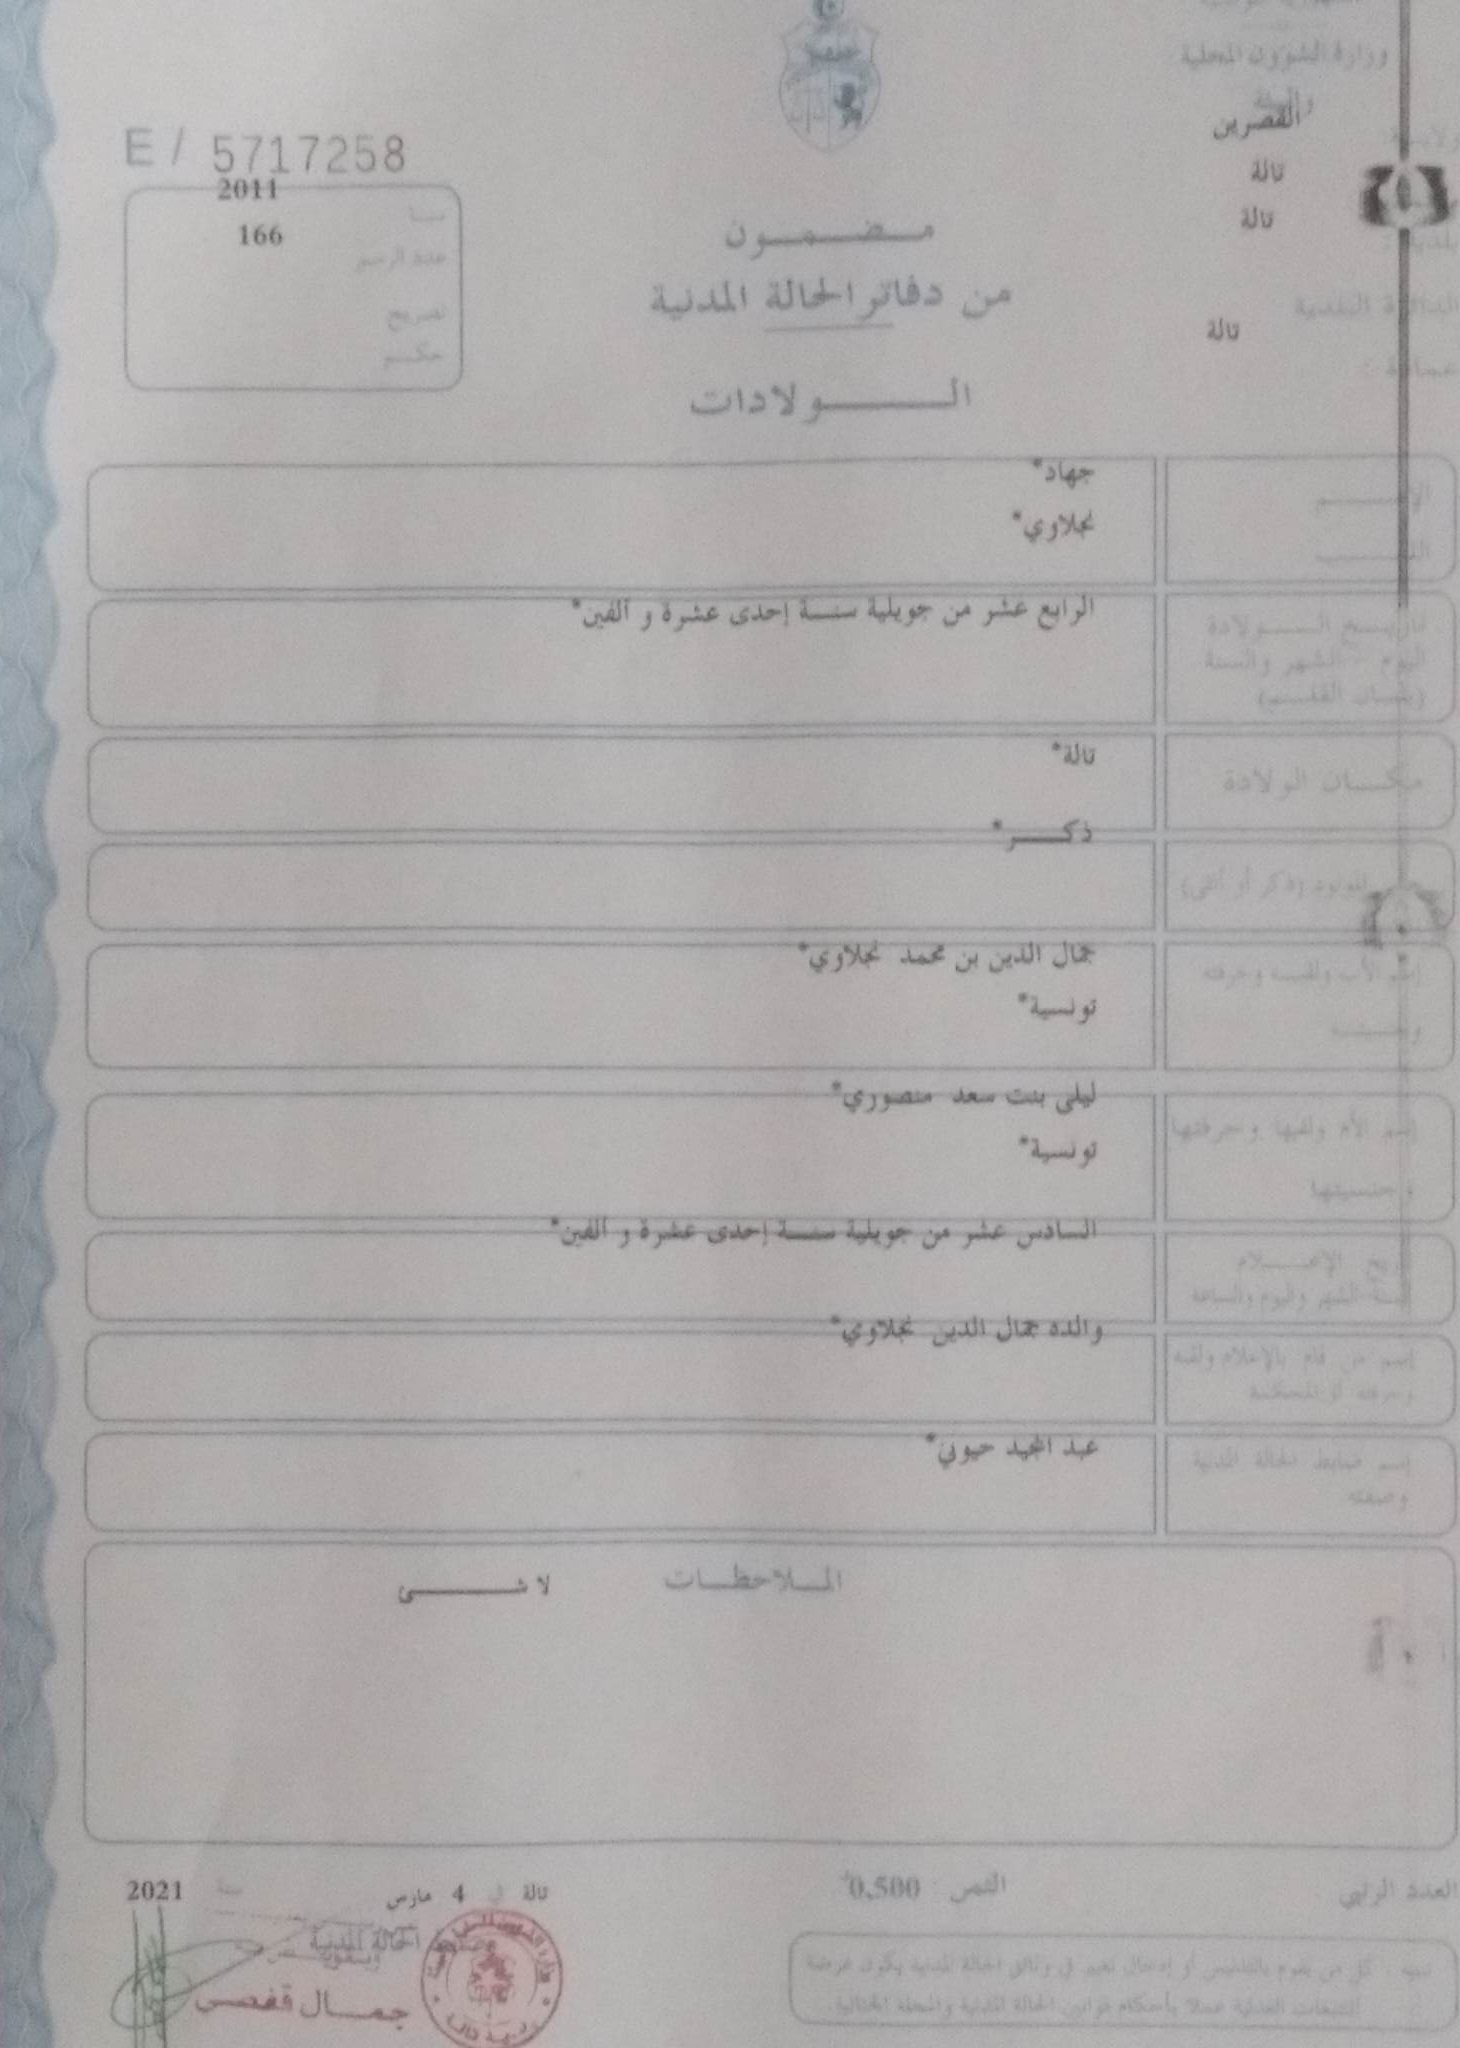 وزارة الشؤون المحلية
والبيئة
القصرين
تالة
تالة
الدائرة البلدية
تالة
E / 5717258
2011
166
عدد الرسم
تصريح
حكم
مضمون
من دفاتر الحالة المدنية
الولادات
جهاد*
نجلاوي*
تاريخ الولادة
اليوم - الشهر والسنة
(بلسان القلم)
الرابع عشر من جويلية سنة إحدى عشرة و ألفين*
مكان الولادة
تالة*
المولود (ذكر أو أنثى)
ذكر*
إسم الأب ولقبه وحرفته
جمال الدين بن محمد نجلاوي*
تونسية*
إسم الأم ولقبها وحرفتها
وجنسيتها
ليلى بنت سعد منصوري*
تونسية*
تاريخ الإعلام
السنة الشهر واليوم والساعة
السادس عشر من جويلية سنة إحدى عشرة و ألفين*
إسم من قام بالإعلام ولقبه
وحرفته أو المحكمة
والده جمال الدين نجلاوي*
إسم ضابط الحالة المدنية
وصفته
عبد المجيد حيوني*
الملاحظات
لا شى
العدد الرتبي
الثمن : 0,500
تالة في 4 مارس سنة 2021
ضابط الحالة المدنية
جمال قفصي
تنبيه : كل من يقوم بالتدليس أو إدخال تغيير في وثائق الحالة المدنية يكون عرضة
للتتبعات العدلية عملا بأحكام قوانين الحالة المدنية والمجلة الجنائية.